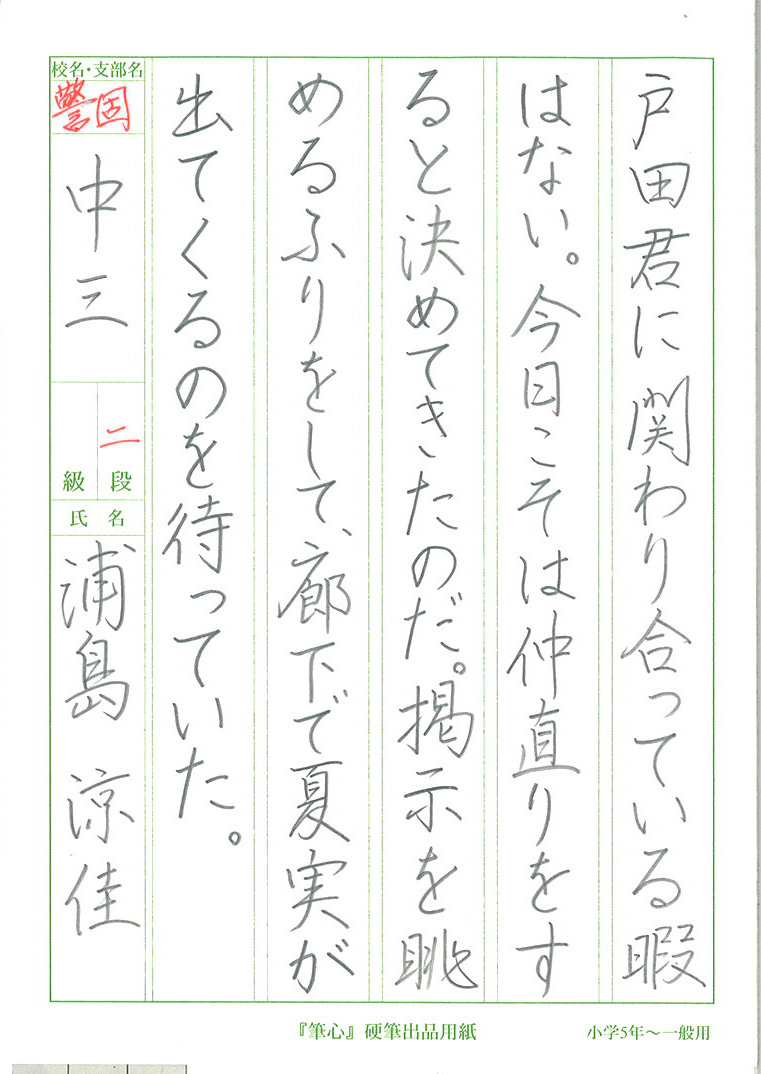 戸田君に関わり合っている暇
はない。今日こそは仲直りをす
ると決めてきたのだ。掲示を眺
めるふりをして、廊下で夏実が
出てくるのを待っていた。
校名・支部名
警固
中三
二段
級
氏名
浦島 涼佳
『筆心』硬筆出品用紙
小学5年～一般用